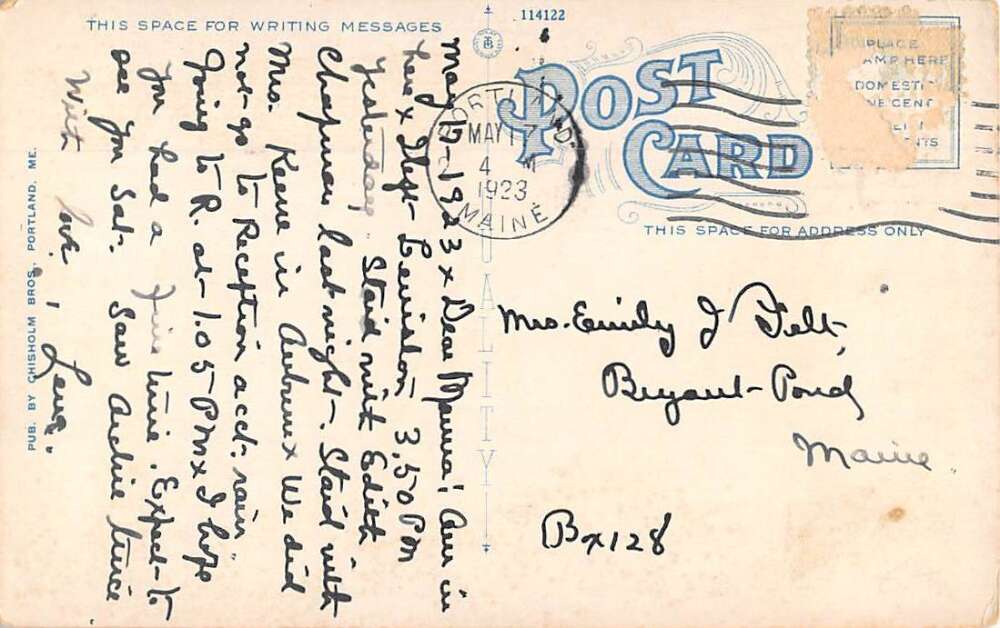 THIS SPACE FOR WRITING MESSAGES
114122
POST CARD
PLACE
AMP HERE
DOMESTI
NE CENT
NTS
PORTLAND.
MAY 17
4 M
1923
MAINE
THIS SPACE FOR ADDRESS ONLY
QUALITY
PUB. BY CHISHOLM BROS., PORTLAND, ME.
May 17-1923 x Dear Mamma! Am in
here x left Lewiston 3.50 PM
yesterday. Staid with Edith
Chapman last night. Staid with
Mrs. Keene in Auburn x We did
not go to Reception acct. rain.
Going to R. at 1.05 PM x I hope
you had a fine time. Expect to
see you Sat. Saw Archie twice
With love, Lena.
Mrs. Emily J Felt,
Bryant Pond,
Maine.
Bx 128